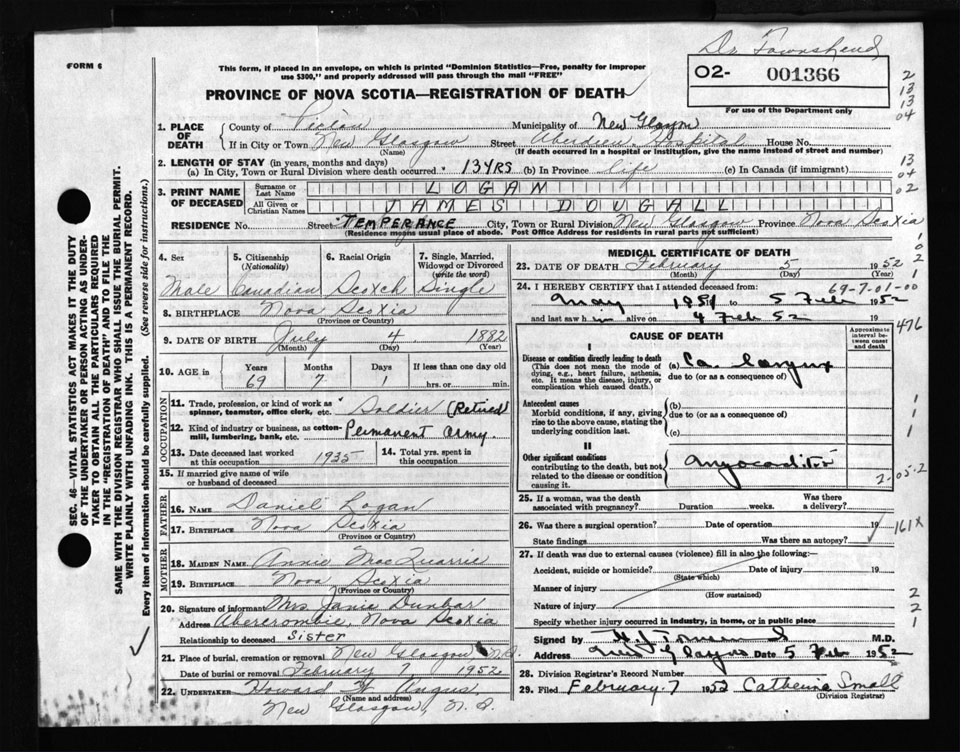 Dr Townshend
FORM 6
This form, if placed in an envelope, on which is printed "Dominion Statistics—Free, penalty for improper
use $300," and properly addressed will pass through the mail "FREE"
O2- 001366
For use of the Department only
PROVINCE OF NOVA SCOTIA—REGISTRATION OF DEATH
1. PLACE OF DEATH
County of Pictou Municipality of New Glasgow
If in City or Town New Glasgow (Name) Street Hospital House No.
(If death occurred in a hospital or institution, give the name instead of street and number)
2. LENGTH OF STAY (in years, months and days)
(a) In City, Town or Rural Division where death occurred 13 YRS (b) In Province life (c) In Canada (if immigrant)
3. PRINT NAME OF DECEASED
Surname or Last Name LOGAN
All Given or Christian Names JAMES DOUGALL
RESIDENCE No. Street TEMPERANCE City, Town or Rural Division New Glasgow Province Nova Scotia
(Residence means usual place of abode. Post Office Address for residents in rural parts not sufficient)
4. Sex Male
5. Citizenship (Nationality) Canadian
6. Racial Origin Scotch
7. Single, Married, Widowed or Divorced (write the word) Single
8. BIRTHPLACE Nova Scotia
(Province or Country)
9. DATE OF BIRTH July 4 1882
(Month) (Day) (Year)
10. AGE in Years 69 Months 7 Days 1 If less than one day old hrs. or min.
OCCUPATION
11. Trade, profession, or kind of work as spinner, teamster, office clerk, etc. Soldier (Retired)
12. Kind of industry or business, as cotton-mill, lumbering, bank, etc. Permanent Army
13. Date deceased last worked at this occupation 1935
14. Total yrs. spent in this occupation
15. If married give name of wife or husband of deceased
FATHER
16. Name Daniel Logan
17. Birthplace Nova Scotia
(Province or Country)
MOTHER
18. MAIDEN NAME Annie MacQuarrie
19. Birthplace Nova Scotia
(Province or Country)
20. Signature of informant Mrs Janie Dunbar
Address Abercrombie, Nova Scotia
Relationship to deceased Sister
21. Place of burial, cremation or removal New Glasgow N.S.
Date of burial or removal February 7 1952
22. UNDERTAKER Howard W. Angus
(Name and address)
New Glasgow, N.S.
MEDICAL CERTIFICATE OF DEATH
23. DATE OF DEATH February 5 1952
(Month) (Day) (Year)
69-7-01-00
24. I HEREBY CERTIFY that I attended deceased from:
May 1951 to 5 Feb 1952
and last saw him alive on 4 Feb 52 19
CAUSE OF DEATH
Approximate interval between onset and death
I
Disease or condition directly leading to death
(This does not mean the mode of dying, e.g., heart failure, asthenia, etc. It means the disease, injury, or complication which caused death.)
(a) Ca. larynx
due to (or as a consequence of)
Antecedent causes
Morbid conditions, if any, giving rise to the above cause, stating the underlying condition last.
(b)
due to (or as a consequence of)
(c)
II
Other significant conditions
contributing to the death, but not related to the disease or condition causing it.
Myocarditis
25. If a woman, was the death associated with pregnancy? Duration weeks. Was there a delivery?
26. Was there a surgical operation? Date of operation 19
State findings Was there an autopsy?
161X
27. If death was due to external causes (violence) fill in also the following:—
Accident, suicide or homicide? Date of injury 19
(State which)
Manner of injury
(How sustained)
Nature of injury
Specify whether injury occurred in industry, in home, or in public place
Signed by M.D.
Address New Glasgow Date 5 Feb 1952
28. Division Registrar's Record Number
29. Filed February 7 1952 Catherine Small
(Division Registrar)
SEC. 46—VITAL STATISTICS ACT MAKES IT THE DUTY
OF THE UNDERTAKER OR PERSON ACTING AS UNDER-
TAKER TO OBTAIN ALL THE PARTICULARS REQUIRED
IN THE "REGISTRATION OF DEATH" AND TO FILE THE
SAME WITH THE DIVISION REGISTRAR WHO SHALL ISSUE THE BURIAL PERMIT.
WRITE PLAINLY WITH UNFADING INK. THIS IS A PERMANENT RECORD.
Every item of information should be carefully supplied. (See reverse side for instructions.)
2
13
13
04
13
07
02
1
0
2
476
1
1
1
2-05-2
2
2
1